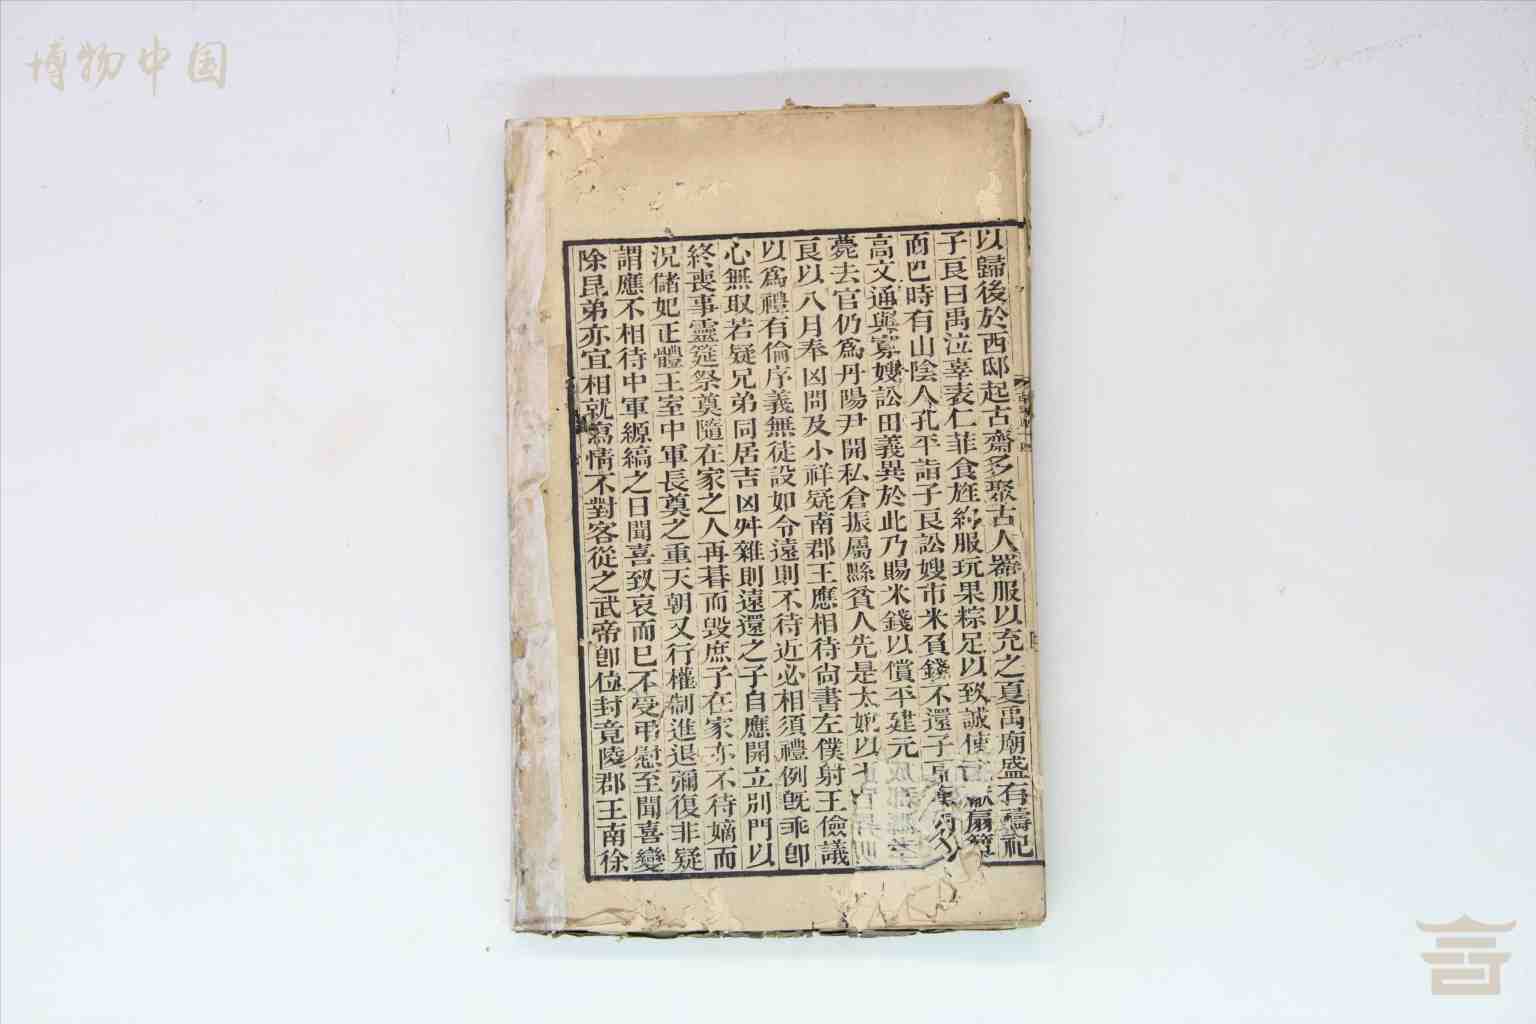 博物中国
以歸後於西邸起古齋多聚古人器服以充之夏禹廟盛有禱祀
子良曰禹泣辜表仁菲食旌約服玩果粽足以致誠使獻扇簟
而已時有山陰人孔平詣子良訟嫂市米負錢不還子良
高文通與寡嫂訟田義異於此乃賜米錢以償平建元
薨去官仍爲丹陽尹開私倉振屬縣貧人先是太妃以七
良以八月奉凶問及小祥疑南郡王應相待尙書左僕射王儉議
以爲禮有倫序義無徒設如令遠則不待近必相須禮例旣乖卽
心無取若疑兄弟同居吉凶舛雜則遠還之子自應開立別門以
終喪事靈筵祭奠隨在家之人再朞而毀庶子在家亦不待嫡而
況儲妃正體王室中軍長嫡之重天朝又行權制進退彌復非疑
謂應不相待中軍縓縞之日聞喜致哀而已不受弔慰至聞喜變
除昆弟亦宜相就寫情不對客從之武帝卽位封竟陵郡王南徐